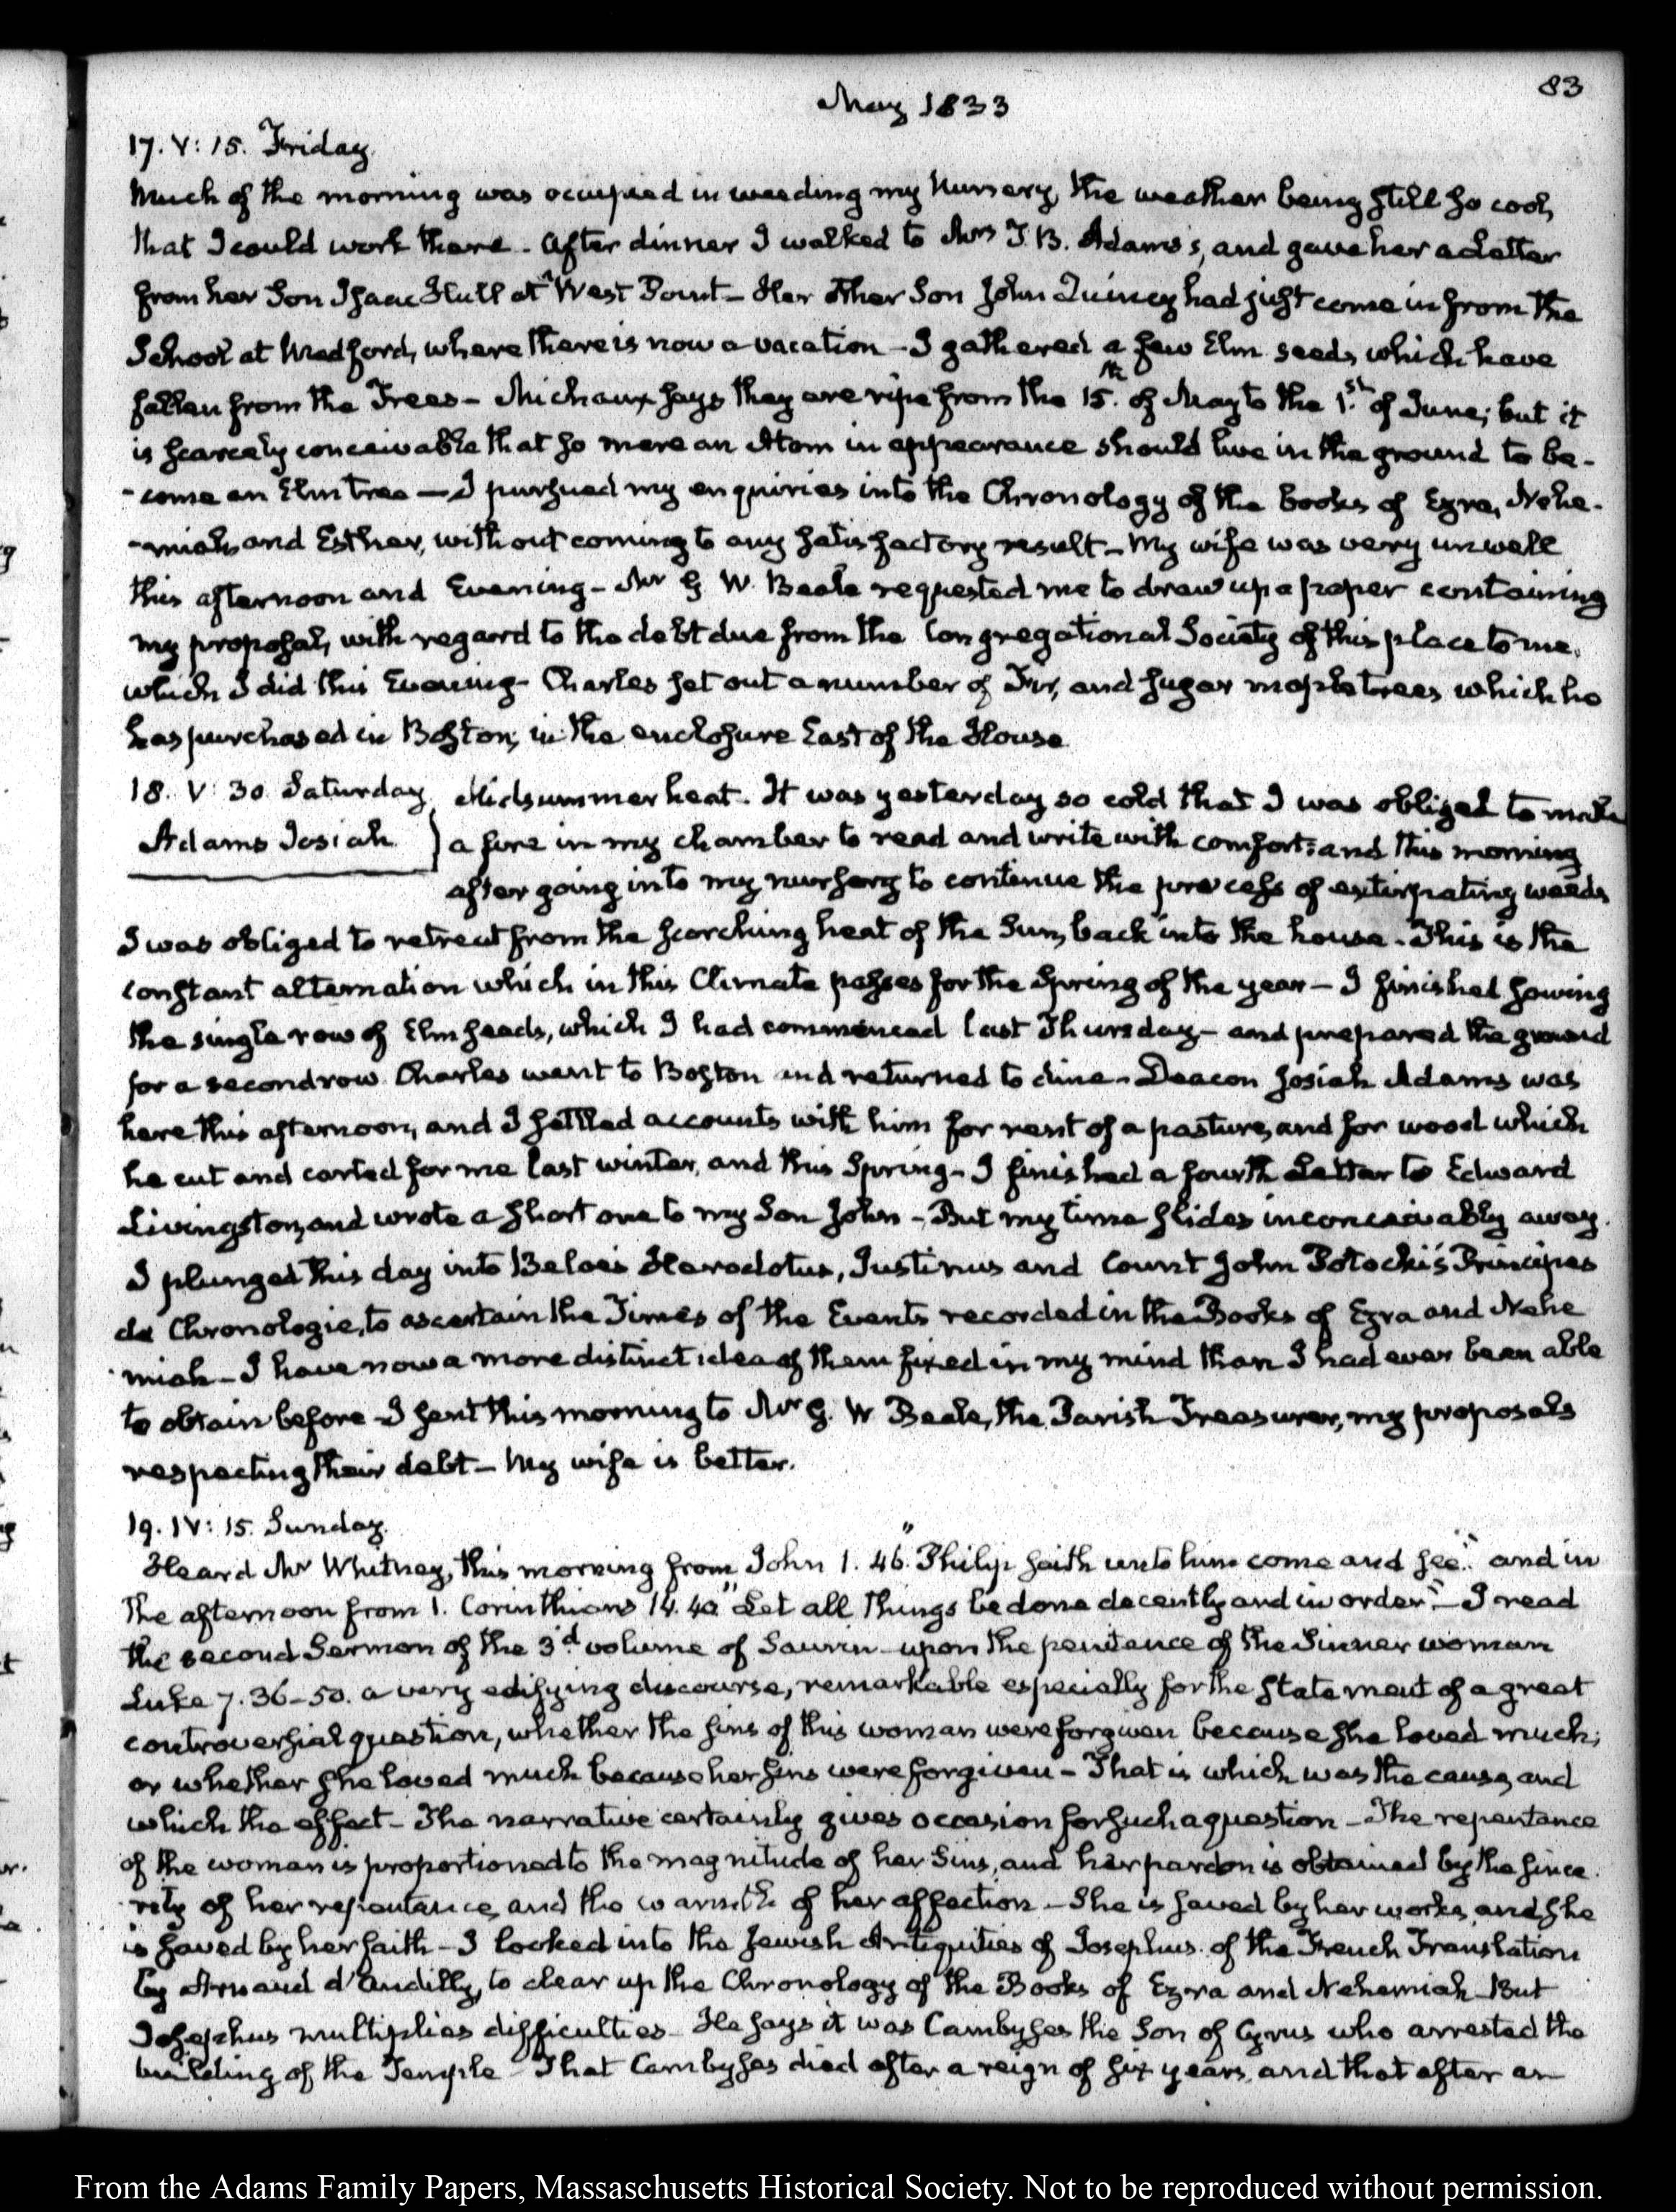 83
May 1833
17. V: 15. Friday.
Much of the morning was occupied in weeding my Nursery, the weather being still so cool,
that I could work there - After dinner I walked to Mrs T. B. Adams's, and gave her a Letter
from her Son Isaac Hull at West Point - Her other Son John Quincy had just come in from the
School at Medford, where there is now a vacation - I gathered a few Elm seeds, which have
fallen from the Trees - Michaux says they are ripe from the 15th of May to the 1st of June; but it
is scarcely conceivable that so mere an Atom in appearance should live in the ground to be-
-come an Elm tree — I pursued my enquiries into the Chronology of the books of Ezra, Nehe-
-miah and Esther, without coming to any satisfactory result - My wife was very unwell
this afternoon and Evening - Mr G W. Beale requested me to draw up a paper containing
my proposal, with regard to the debt due from the Congregational Society of this place to me.
which I did this Evening - Charles set out a number of Fir, and sugar maple trees which he
has purchased in Boston, in the enclosure East of the House
18. V: 30. Saturday Midsummer heat. It was yesterday so cold that I was obliged to make
Adams Josiah } a fire in my chamber to read and write with comfort: and this morning
after going into my nursery to continue the process of extirpating weeds
I was obliged to retreat from the scorching heat of the Sun, back into the house - This is the
constant alternation which in this Climate passes for the Spring of the year - I finished sowing
the single row of Elm seeds, which I had commenced last Thursday - and prepared the ground
for a second row. Charles went to Boston and returned to dine - Deacon Josiah Adams was
here this afternoon, and I settled accounts with him for rent of a pasture, and for wood which
he cut and carted for me last winter, and this Spring - I finished a fourth Letter to Edward
Livingston, and wrote a short one to my Son John - But my time slides inconceivably away.
I plunged this day into Beloe's Herodotus, Justinus and Count John Potocki's Principes
de Chronologie, to ascertain the Times of the Events recorded in the Books of Ezra and Nehe
-miah - I have now a more distinct idea of them fixed in my mind than I had ever been able
to obtain before - I sent this morning to Mr G. W Beale, the Parish Treasurer, my proposals
respecting their debt - My wife is better.
19. IV: 15. Sunday.
Heard Mr Whitney, this morning from John 1. 46. "Philip saith unto him come and see". and in
the afternoon from 1. Corinthians 14. 40 "Let all things be done decently and in order" - I read
the second Sermon of the 3d volume of Saurin - upon the penitence of the Sinner woman
Luke 7. 36-50. a very edifying discourse, remarkable especially for the statement of a great
controversial question, whether the sins of this woman were forgiven because she loved much;
or whether she loved much because her sins were forgiven - That is which was the cause, and
which the effect - The narrative certainly gives occasion for such a question - The repentance
of the woman is proportioned to the magnitude of her Sins, and her pardon is obtained by the since
-rity of her repentance, and the warmth of her affection - She is saved by her works, and she
is saved by her faith - I looked into the Jewish Antiquities of Josephus. of the French Translation
by Arnaud d'Andilly, to clear up the Chronology of the Books of Ezra and Nehemiah - But
Josephus multiplies difficulties - He says it was Cambyses the Son of Cyrus who arrested the
building of the Temple - That Cambyses died after a reign of six years, and that after an
From the Adams Family Papers, Massachusetts Historical Society. Not to be reproduced without permission.